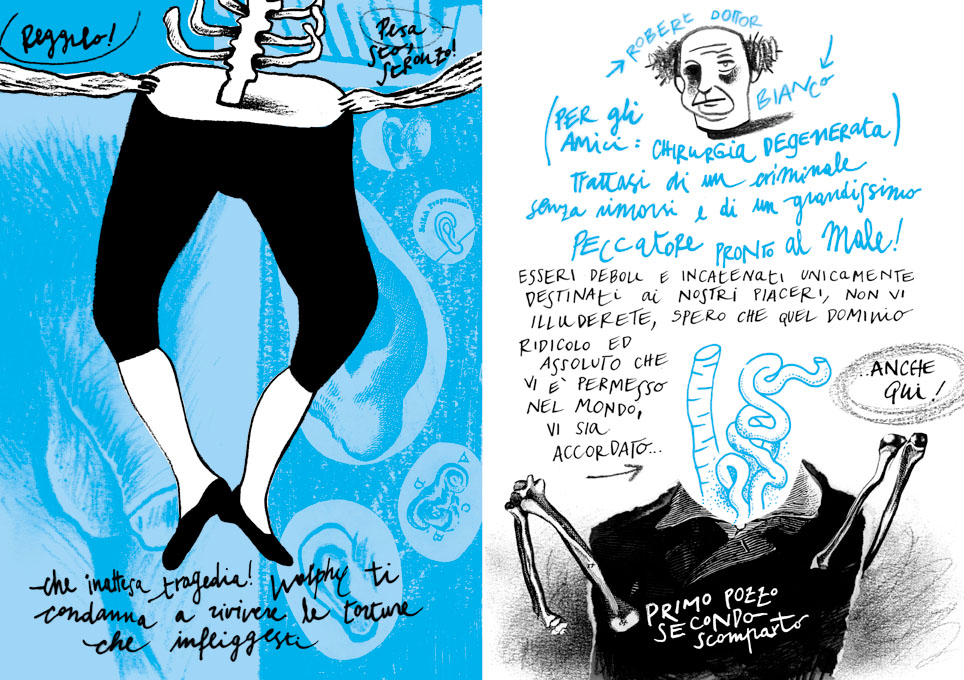 Reggilo!
Pesa
sto,
stronzo!
che inattesa tragedia! Wolphy ti
condanna a rivivere le torture
che infliggesti
ROBERT DOTTOR
BIANCO
(PER gli
Amici: CHIRURGIA DEgENERATA)
Trattasi di un criminale
senza rimorsi e di un grandissimo
PECCATORE PRONTO al Male!
ESSERI DEBOLI E INCATENATI UNICAMENTE
DESTINATI ai NOSTRI PIACERI, NON VI
ILLUDERETE, SPERO CHE QUEL DOMINIO
RIDICOLO ED
ASSOLUTO CHE
VI E' PERMESSO
NEL MONDO,
VI SIA
ACCORDATO...
...ANCHE
QUI!
PRIMO POZZO
SECONDO
Scomparto